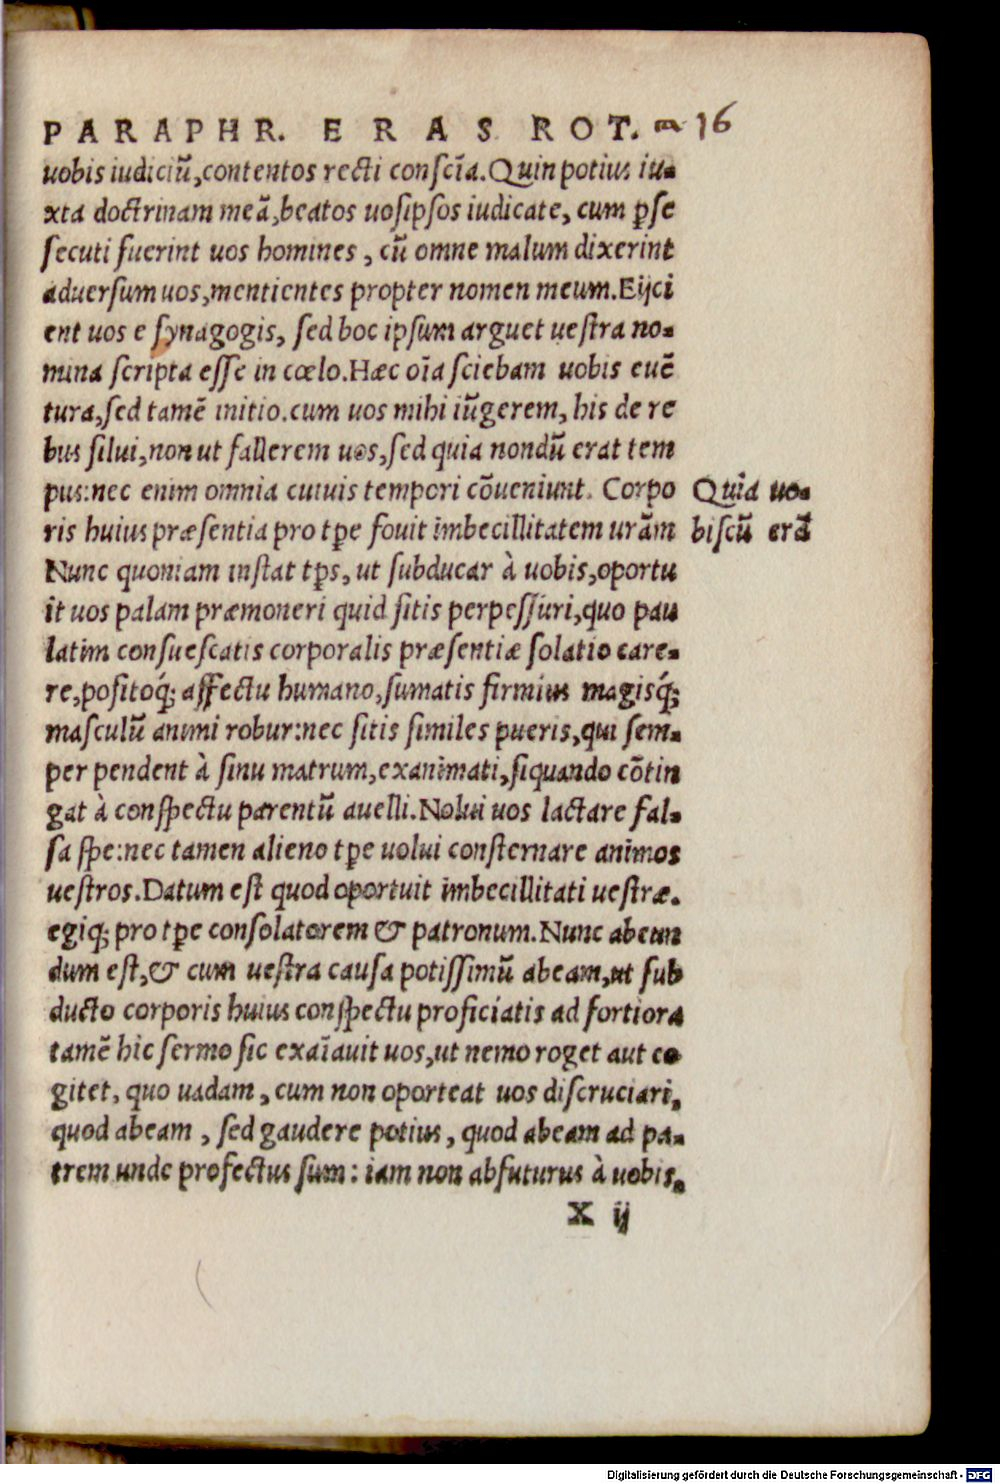 PARAPHR. ERAS ROT. 16
uobis iudiciū,contentos recti conscīa.Quin potius iu-
xta doctrinam meā,beatos uosipsos iudicate, cum ꝑse
secuti fuerint uos homines , cū omne malum dixerint
aduersum uos,mentientes propter nomen meum.Eijci
ent uos e synagogis, sed hoc ipsum arguet uestra no-
mina scripta esse in cœlo.Hæc oīa sciebam uobis euē
tura,sed tamē initio.cum uos mihi iūgerem, his de re
bus silui,non ut fallerem uos,sed quia nondū erat tem
pus:nec enim omnia cuiuis tempori cōueniunt. Corpo
Quia uo-
ris huius præsentia pro tꝑe fouit imbecillitatem urām
biscū erā
Nunc quoniam instat tꝑs, ut subducar à uobis,oportu
it uos palam præmoneri quid sitis perpessuri,quo pau
latim consuescatis corporalis præsentiæ solatio care-
re,positoq́; affectu humano,sumatis firmius magisq́;
masculū animi robur:nec sitis similes pueris,qui sem-
per pendent à sinu matrum,exanimati,siquando cōtin
gat à conspectu parentū auelli.Nolui uos lactare fal-
sa spe:nec tamen alieno tꝑe uolui consternare animos
uestros.Datum est quod oportuit imbecillitati uestræ.
egiq; pro tꝑe consolatorem & patronum.Nunc abeun
dum est,& cum uestra causa potissimū abeam,ut sub
ducto corporis huius conspectu proficiatis ad fortiora
tamē hic sermo sic exaīauit uos,ut nemo roget aut co
gitet, quo uadam , cum non oporteat uos discruciari,
quod abeam , sed gaudere potius, quod abeam ad pa-
trem unde profectus sum: iam non abfuturus à uobis,
X ij
Digitalisierung gefördert durch die Deutsche Forschungsgemeinschaft - DFG